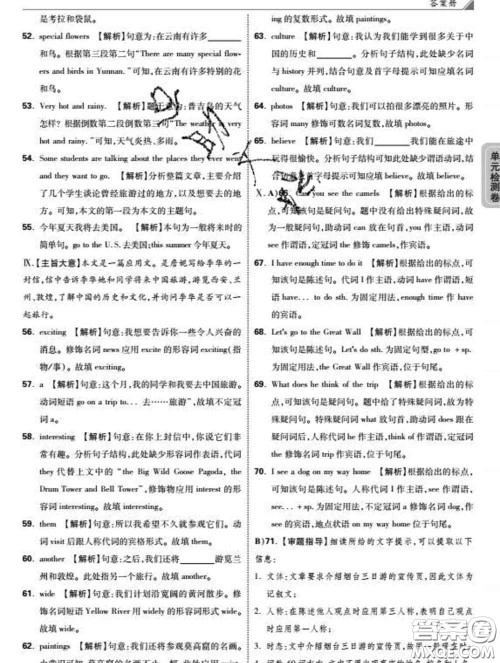 答案册
是考拉和袋鼠。
52. special flowers 【解析】句意:在云南有许多
和鸟。根据第三段第二句“There are many special flow-
ers and birds in Yunnan.”可知,在云南有许多特别的花
和鸟。
53. Very hot and rainy. 【解析】题干意为:普吉岛的天气
怎么样?根据倒数第二段倒数第三句“The weather is very
hot and rainy.”可知,天气炎热、多雨。
54. Some students are talking about the places they ever went
and they want to go. 【解析】分析整篇文章,主要介绍
了几个学生谈论曾经旅游过的地方,以及想要去的地
方。可知,本文的第一段为本文的主题句。
55. 今年夏天我将去美国。 【解析】本句为一般将来时的
简单句。go to the U. S.去美国;this summer 今年夏天。
Ⅸ.【主旨大意】本文是一篇应用文。是詹妮写给李华的一
封信,信中告诉李华她和同学将来中国旅游,游览西安、兰
州、敦煌,了解中国的历史和文化,并询问李华是否可以一
起旅行。
56. exciting 【解析】句意:我想要告诉你一些令人兴奋的
消息。修饰名词 news 应用 excite 的形容词 exciting(指
物/事)。故填 exciting。
57. a 【解析】句意:这个月,我的同学和我要去中国旅游。
动词短语 go on a trip to... 去……旅游”,故填不定冠
词 a。
58. interesting 【解析】句意:在你上封信中,你说它们非
常有趣。分析句子结构,此处缺少形容词作表语,代词
they 代替上文中的 “the Big Wild Goose Pagoda, the
Drum Tower and Bell Tower”,修饰物应用 interest 的形
容词 interesting。故填 interesting。
59. them 【解析】句意:所以我希望不久就参观它们。动
词 visit 后跟人称代词的宾格形式。故填 them。
60. another 【解析】句意:之后,我们还将游览兰
州和敦煌。此处指代另外的景点。故填 another。
61. wide 【解析】句意:我们计划沿宽阔的黄河散步。修
饰名词短语 Yellow River 用 widely 的形容词形式 wide。
故填 wide。
62. paintings 【解析】句意:我们还将参观莫高窟的名画。
ing 的复数形式。故填 paintings。
63. culture 【解析】句意:我认为我们能学到很多关于中
国的历史和。分析句子结构,此处缺少名词
与 history 并列,结合句意及首字母提示可知应填名词
culture。故填 culture。
64. photos 【解析】句意:我们可以拍很多漂亮的照片。形
容词 many 修饰可数名词复数,故填 photos。
65. believe 【解析】句意:我们能在旅途中
玩得很愉快。分析句子结构可知此处缺少谓语动词,结
合语意及首字母提示可知应填 believe。故填 believe。
Ⅹ. A)66. Can you see the camels 【解析】根据给出的标
点,可知该句是疑问句。题中没有给出特殊疑问词,故
为一般疑问句,助动词 can 放在句首,you 作主语,动词
see 作谓语,定冠词 the 修饰 camels,作宾语。
67. I have enough time to do it 【解析】根据给出的标点,可
知该句是陈述句。代词 I 作主语,动词 have 作谓语,短
语 have... to do sth. 为固定用法,enough time 作 have
的宾语。
68. Let's go to the Great Wall 【解析】根据给出的标点,可
知该句为陈述句。Let's do sth. 为固定句型,go to + sp.
为固定用法,the Great Wall 作宾语,位于句尾。
69. What does he think of the trip 【解析】根据给出的标
点,可知该句为疑问句。题中给了特殊疑问词,故为特
殊疑问句。特殊疑问词 what 放句首,助动词 does 跟在
疑问词后,人称代词 he 作主语,think of 作谓语,定冠词
the 修饰名词 trip 作宾语,位于句尾。
70. I see a dog on my way home 【解析】根据给出的标点,
可知该句是陈述句。人称代词 I 作主语,see 作谓语,
see... 为固定用法,不定冠词 a 修饰名词 dog,作宾
语,地点状语 on my way home 位于句尾。
B)71.【审题指导】细读所给的文字提示,可以提取以下
信息:
1. 文体:文章要求介绍烟台三日游的宣传页,因此文体为
记叙文;
2. 人称:在陈述他人观点时应用第三人称,表明自己观点
也应用第一人称;
单元检测卷
答案圈